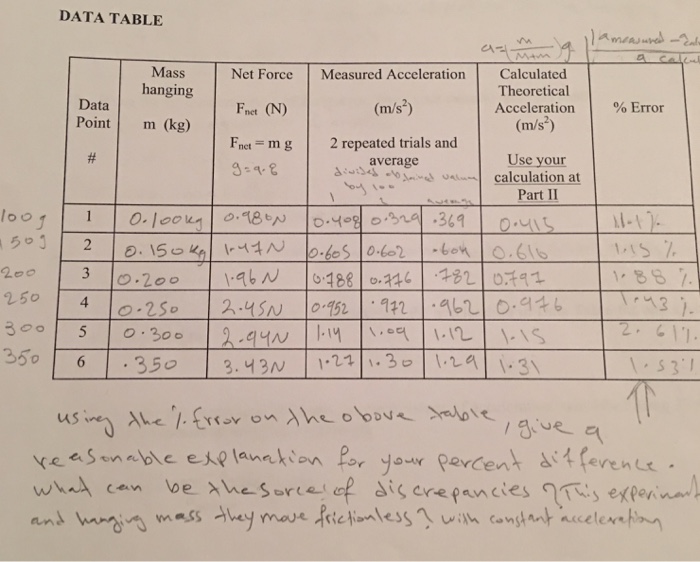 DATA TABLE
a=(m/M+m)g |a measured -
a calcul
Data Point # | Mass hanging m (kg) | Net Force Fnet (N) Fnet = m g g=9.8 | Measured Acceleration (m/s²) 2 repeated trials and average divided obtained values by 100 1 2 average | Calculated Theoretical Acceleration (m/s²) Use your calculation at Part II | % Error
100g 1 0.100kg 0.980N 0.408 0.329 .369 0.415 11.1%
150g 2 0.150kg 1.47N 0.605 0.602 .604 0.616 %
200 3 0.200 1.96N 0.788 0.776 .782 0.797 1.88%
250 4 0.250 2.45N 0.952 .972 .962 0.976 1.43%
300 5 0.300 2.94N 1.14 1.09 1.12 1.15 2.61%
350 6 .350 3.43N 1.27 1.30 1.29 1.31 1.53%
using the % Error on the above table, give a
reasonable explanation for your percent difference.
what can be the sorce of discrepancies? This experiment
and hanging mass they move frictionless? with constant acceleration